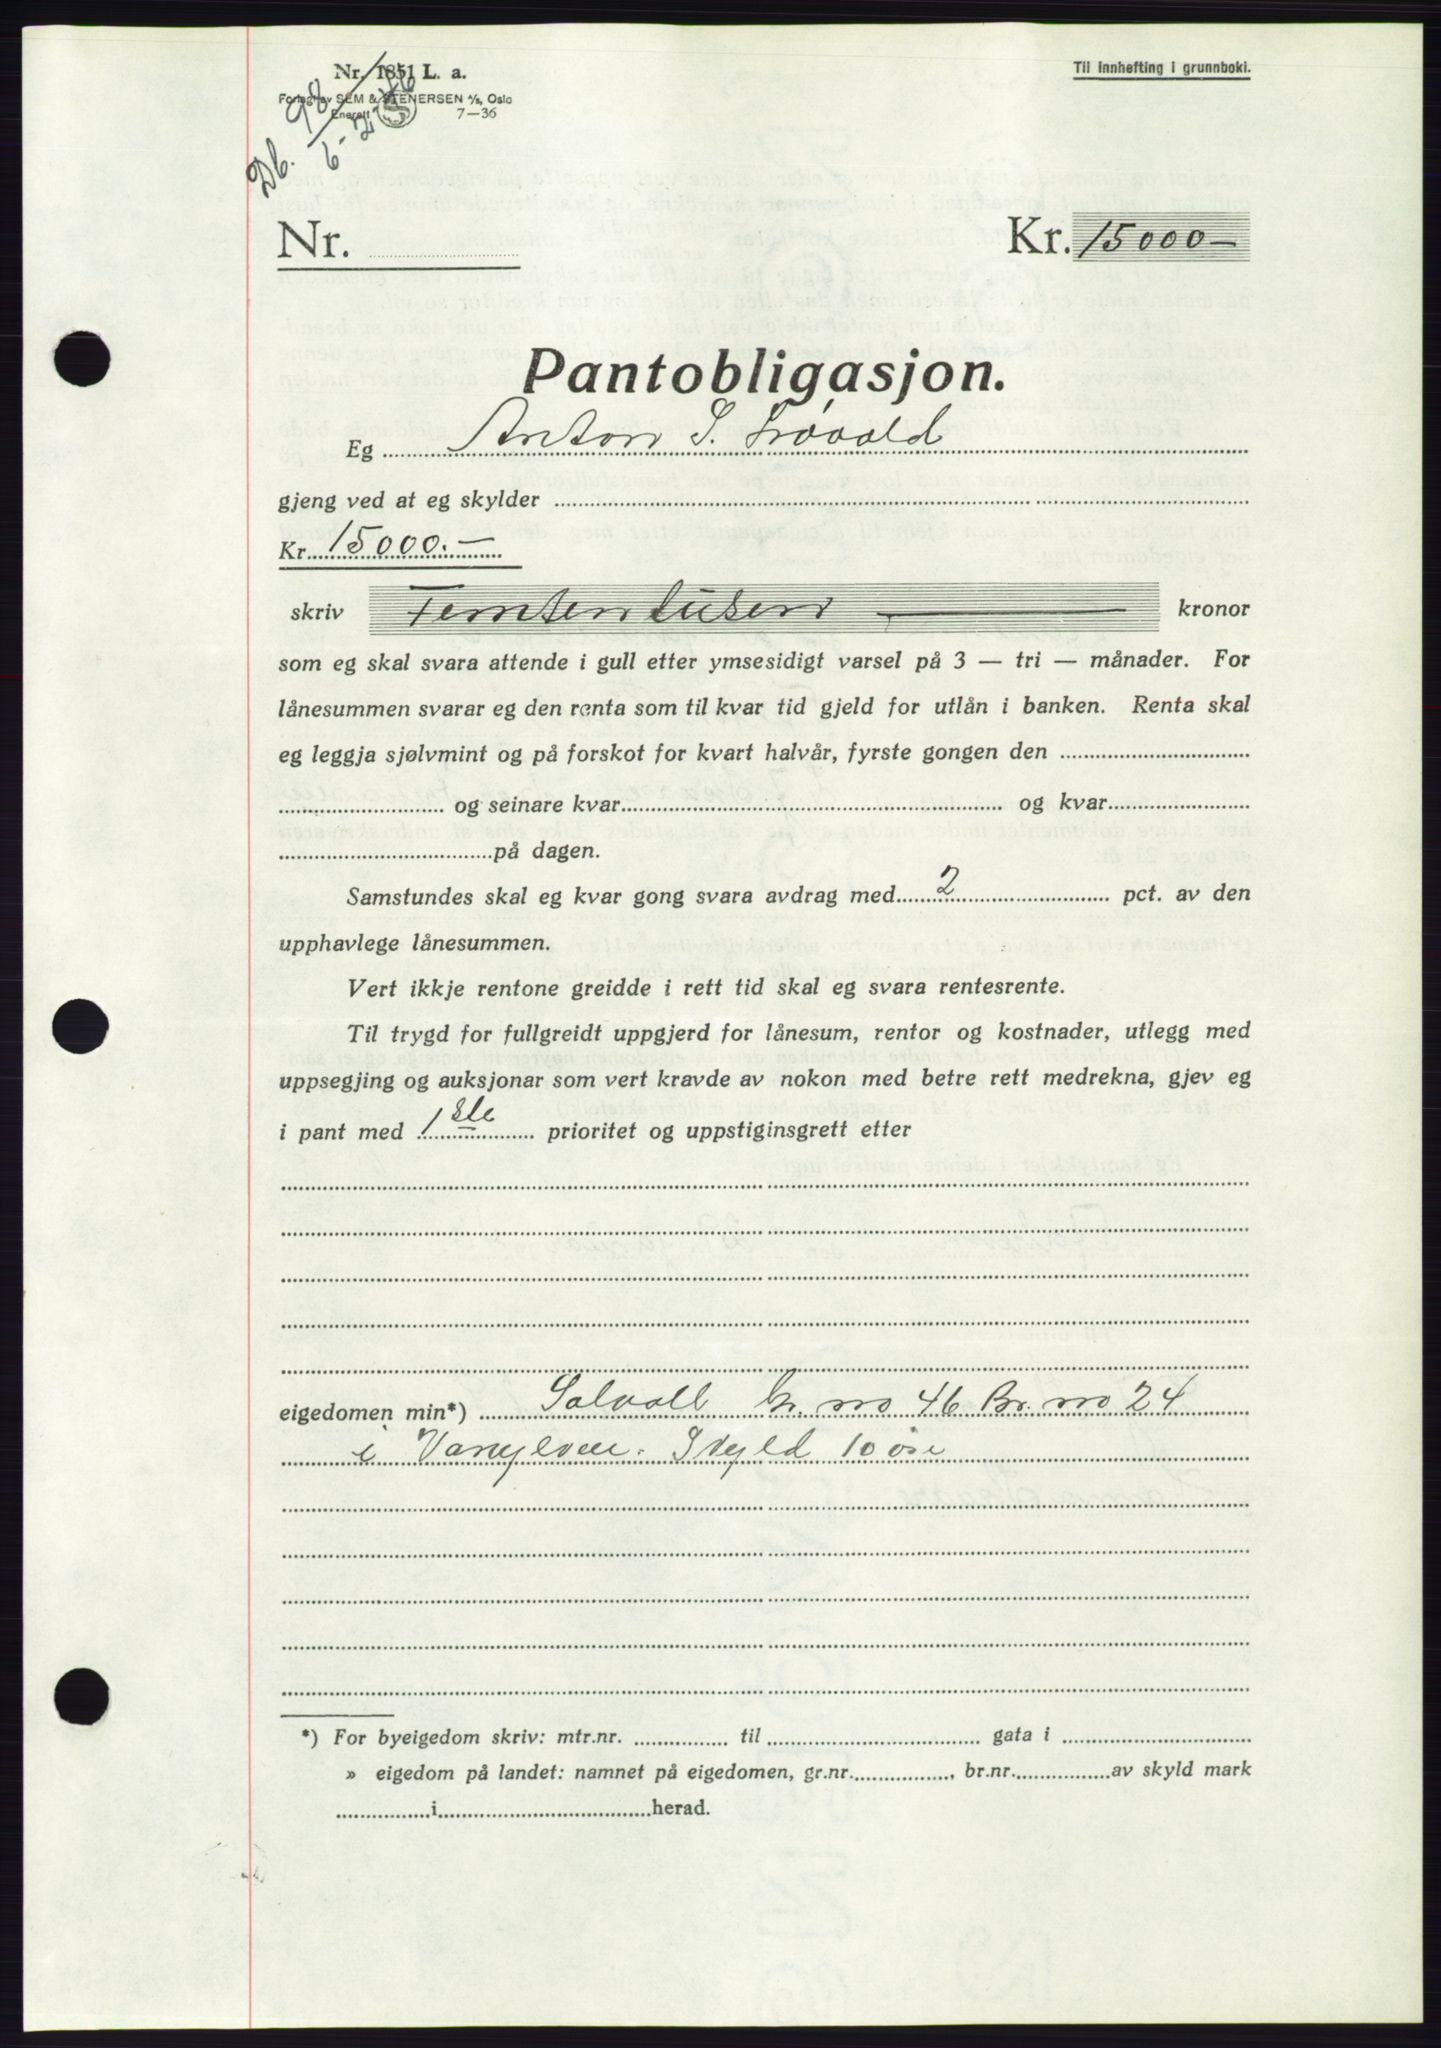 Nr. 1851 L. a.
Forlag av SEM & STENERSEN A/S, Oslo
Enerett 7—36
Til innhefting i grunnboki.
Db. 98/
Nr.
Kr. 15000–
Pantobligasjon.
Eg Anton S.
gjeng ved at eg skylder
Kr. 15000.–
skriv Femten tusen — kronor
som eg skal svara attende i gull etter ymsesidigt varsel på 3 — tri — månader. For
lånesummen svarar eg den renta som til kvar tid gjeld for utlån i banken. Renta skal
eg leggja sjølvmint og på forskot for kvart halvår, fyrste gongen den
og seinare kvar og kvar
på dagen.
Samstundes skal eg kvar gong svara avdrag med 2 pct. av den
upphavlege lånesummen.
Vert ikkje rentone greidde i rett tid skal eg svara rentesrente.
Til trygd for fullgreidt uppgjerd for lånesum, rentor og kostnader, utlegg med
uppsegjing og auksjonar som vert kravde av nokon med betre rett medrekna, gjev eg
i pant med 1ste prioritet og uppstiginsgrett etter
eigedomen min*) Solvoll Gr. no 46 Br. no 24
i Vanylven. Skyld 10 øre
*) For byeigedom skriv: mtr.nr. til gata i
» eigedom på landet: namnet på eigedomen, gr.nr. , br.nr. av skyld mark
i herad.